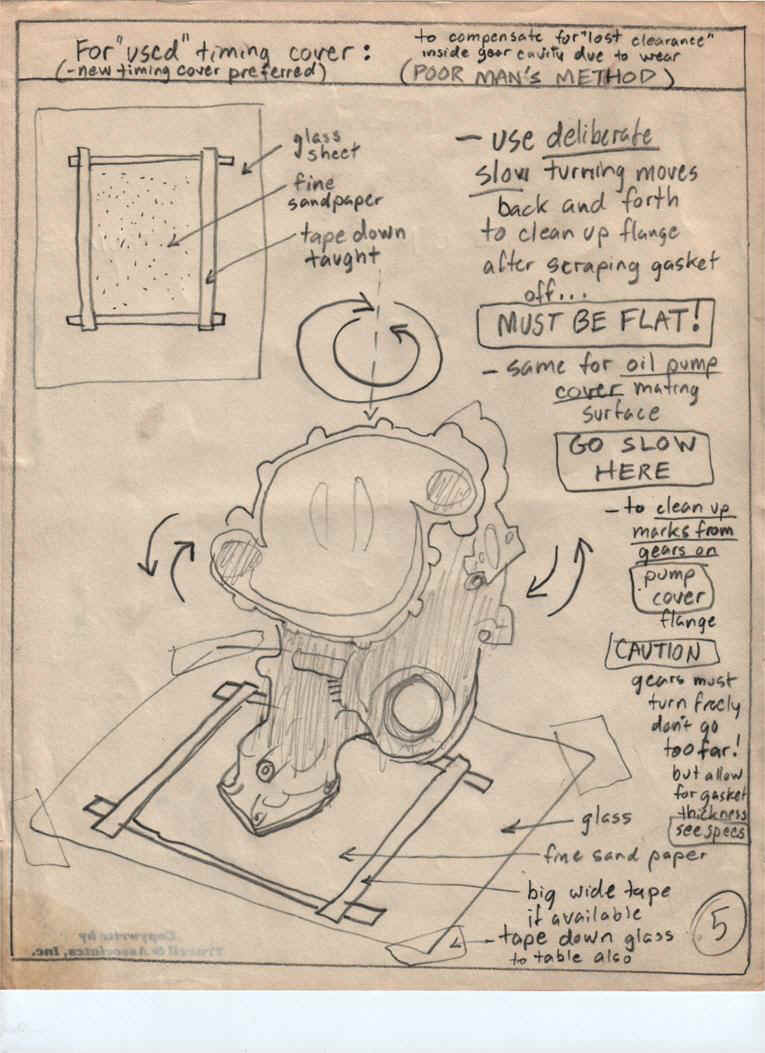 For "used" timing cover:
(-new timing cover preferred)
to compensate for "lost clearance"
inside gear cavity due to wear
(POOR MAN'S METHOD)
glass
sheet
fine
sandpaper
tape down
taught
- use deliberate
slow turning moves
back and forth
to clean up flange
after scraping gasket
off...
MUST BE FLAT!
- same for oil pump
cover mating
surface
GO SLOW
HERE
- to clean up
marks from
gears on
pump
cover
flange
CAUTION
gears must
turn freely
don't go
too far!
but allow
for gasket
thickness
see specs
glass
fine sand paper
big wide tape
if available
- tape down glass
to table also
5
Copywrite by
& Associates, Inc.